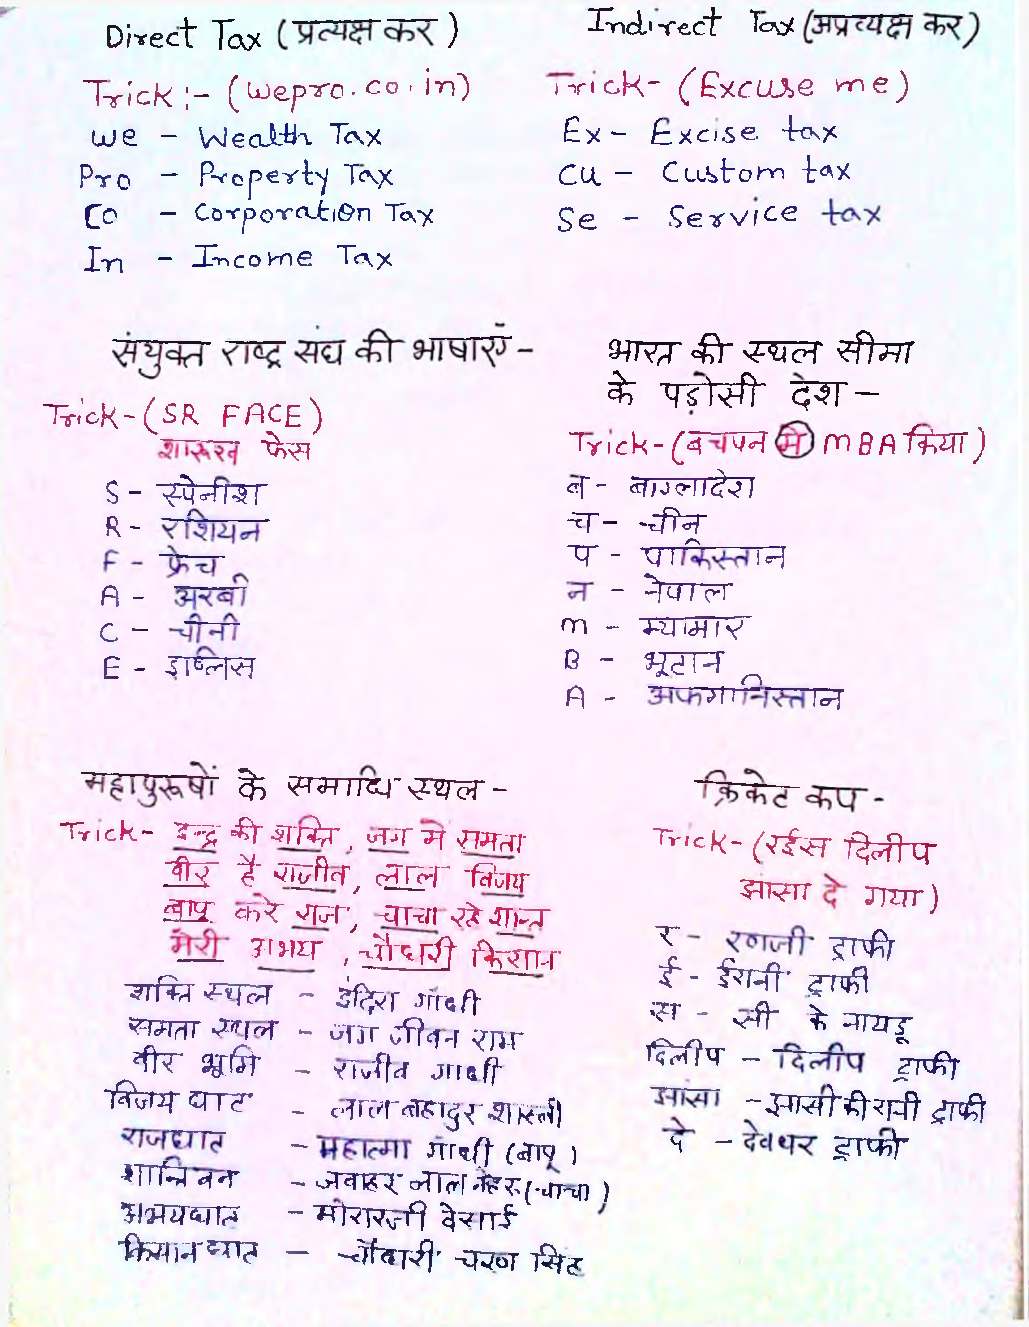 Direct Tax (प्रत्यक्ष कर)
Trick :- (wepro.co.in)
we - Wealth Tax
Pro - Property Tax
Co - Corporation Tax
In - Income Tax
Indirect Tax (अप्रत्यक्ष कर)
Trick- (Excuse me)
Ex - Excise tax
Cu - Custom tax
Se - Service tax
संयुक्त राष्ट्र संघ की भाषाएँ -
Trick-(SR FACE)
शारूख फेस
S - स्पेनीश
R - रशियन
F - फ्रेच
A - अरबी
C - चीनी
E - इग्लिस
भारत की स्थल सीमा
के पड़ोसी देश -
Trick-(बचपन मे MBA किया)
ब - बाग्लादेश
च - चीन
प - पाकिस्तान
न - नेपाल
m - म्यामार
B - भूटान
A - अफगानिस्तान
महापुरूषों के समाधि स्थल -
Trick- इन्द्र की शक्ति, जग मे समता
वीर है राजीव, लाल विजय
बापू करे राज, चाचा रहे शान्त
मेरी अभय, चौधरी किसान
शक्ति स्थल - इंदिरा गांधी
समता स्थल - जग जीवन राम
वीर भूमि - राजीव गांधी
विजय घाट - लाल बहादुर शास्त्री
राजघाट - महात्मा गांधी (बापू)
शान्तिवन - जवाहर लाल नेहरू (चाचा)
अभयघाट - मोरारजी देसाई
किसान घाट - चौधरी चरण सिंह
क्रिकेट कप -
Trick-(रईस दिलीप
झांसा दे गया)
र - रणजी ट्राफी
ई - ईरानी ट्राफी
स - सी के नायडू
दिलीप - दिलीप ट्राफी
झांसा - झासी की रानी ट्राफी
दे - देवधर ट्राफी